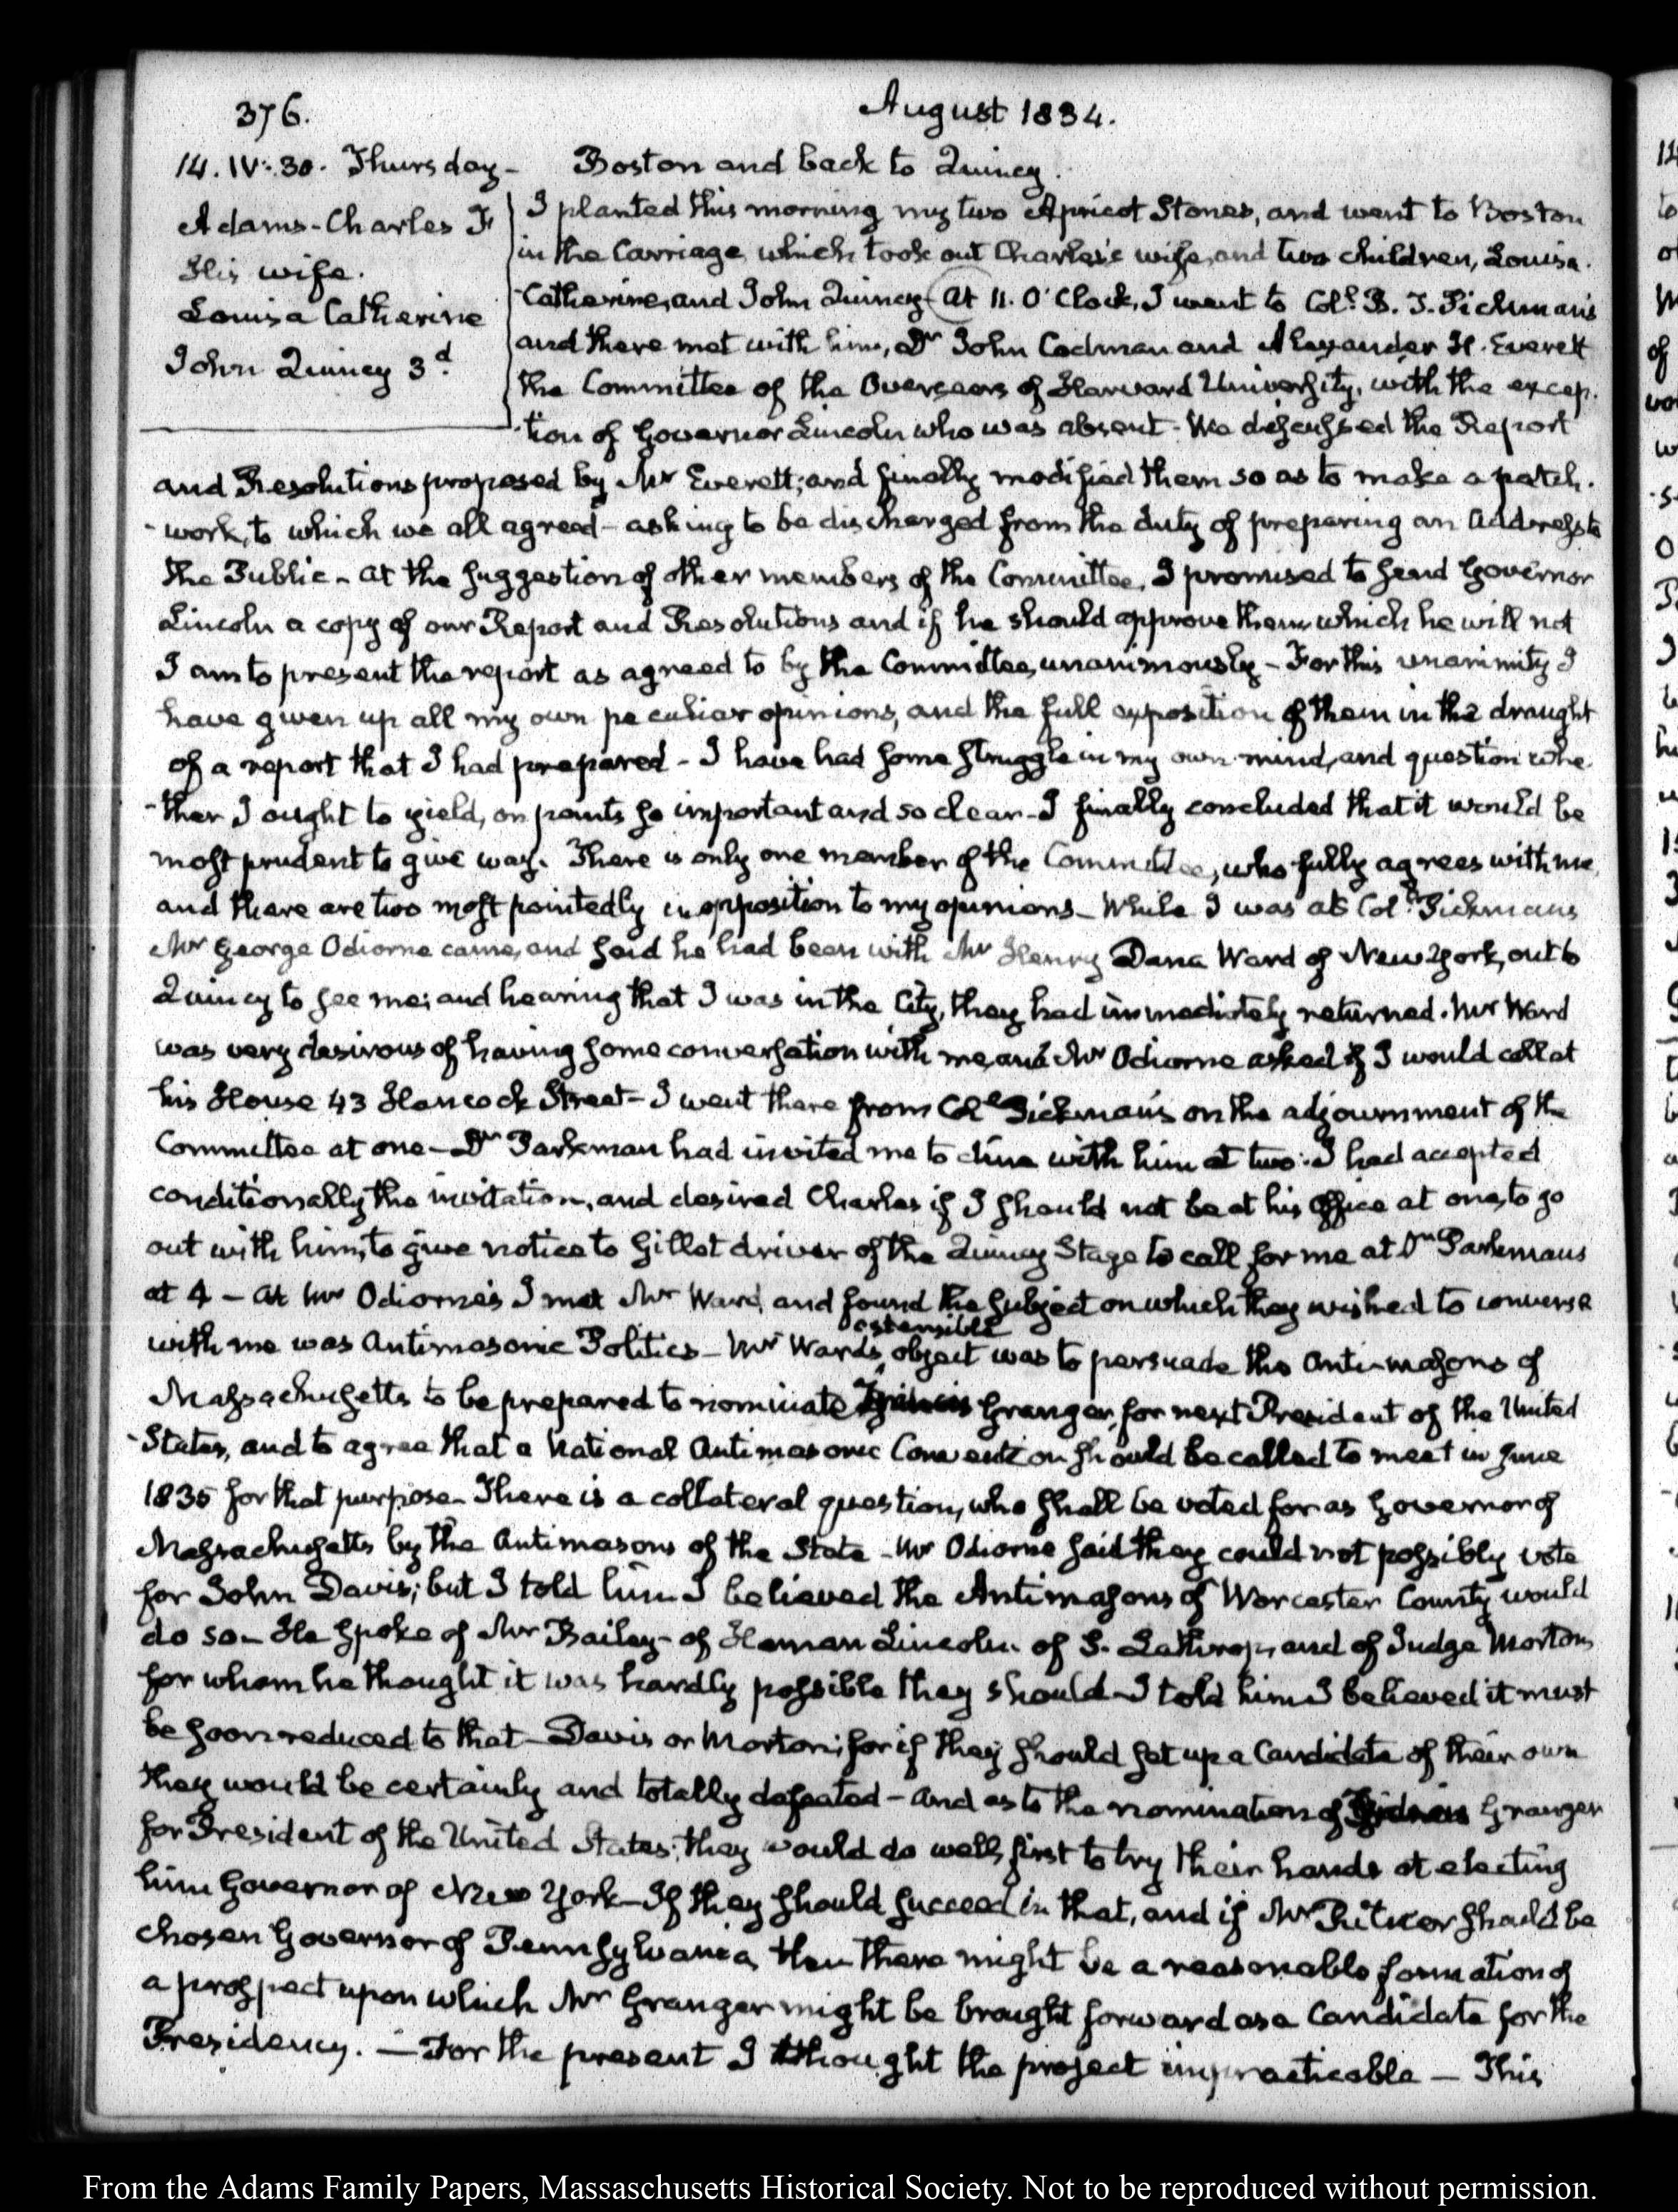 376.
August 1834.
14. IV:30. Thursday-
Boston and back to Quincy.
Adams-Charles F
His wife.
Louisa Catherine
John Quincy 3.d
I planted this morning my two Apricot Stones, and went to Boston
in the Carriage, which took out Charles's wife, and two children, Louisa-
Catherine, and John Quincy- At 11. O'Clock, I went to Col.l B. T. Pickman's
and there met with him, Dr John Codman and Alexander H. Everett
the Committee of the Overseers of Harvard University, with the excep-
-tion of Governor Lincoln who was absent- We discussed the Report
and Resolutions proposed by Mr Everett; and finally modified them so as to make a patch-
-work, to which we all agreed- asking to be discharged from the duty of preparing an Address to
the Public- at the suggestion of other members of the Committee, I promised to send Governor
Lincoln a copy of our Report and Resolutions and if he should approve them, which he will not
I am to present the report as agreed to by the Committee, unanimously- For this unanimity I
have given up all my own peculiar opinions, and the full exposition of them in the draught
of a report that I had prepared- I have had some struggle in my own mind, and question whe-
-ther I ought to yield, on points so important and so clear- I finally concluded that it would be
most prudent to give way. There is only one member of the Committee, who fully agrees with me,
and there are two most pointedly in opposition to my opinions- While I was at Col.l Pickmans
Mr George Odiorne came, and said he had been with Mr Henry Dana Ward of New York, out to
Quincy to see me; and hearing that I was in the City, they had immediately returned. Mr Ward
was very desirous of having some conversation with me, and Mr Odiorne asked if I would call at
his House 43 Hancock Street- I went there from Col.l Pickman's on the adjournment of the
Committee at one- Dr Parkman had invited me to dine with him at two. I had accepted
conditionally the invitation, and desired Charles if I should not be at his Office at one, to go
out with him, to give notice to Gillet driver of the Quincy Stage to call for me at Dr Parkmans
at 4 - At Mr Odiorne's I met Mr Ward, and found the subject on which they wished to converse
with me was Antimasonic Politics- Mr Wards ostensible object was to persuade the Anti-masons of
Massachusetts to be prepared to nominate Francis Granger, for next President of the United
-States, and to agree that a National Antimasonic Convention should be called to meet in June
1835 for that purpose- There is a collateral question, who shall be voted for as Governor of
Massachusetts by the Antimasons of the State- Mr Odiorne said they could not possibly vote
for John Davis; but I told him I believed the Antimasons of Worcester County would
do so- He spoke of Mr Bailey- of Heman Lincoln. of S. Lathrop, and of Judge Morton,
for whom he thought it was hardly possible they should- I told him I believed it must
be soon reduced to that- Davis or Morton; for if they should set up a Candidate of their own
they would be certainly and totally defeated- and as to the nomination of Francis Granger
for President of the United States; they would do well, first to try their hands at electing
him Governor of New York- If they should succeed in that, and if Mr Ritner should be
chosen Governor of Pennsylvania, then there might be a reasonable formation of
a prospect upon which Mr Granger might be brought forward as a Candidate for the
Presidency. - For the present I thought the project impracticable - This
From the Adams Family Papers, Massachusetts Historical Society. Not to be reproduced without permission.